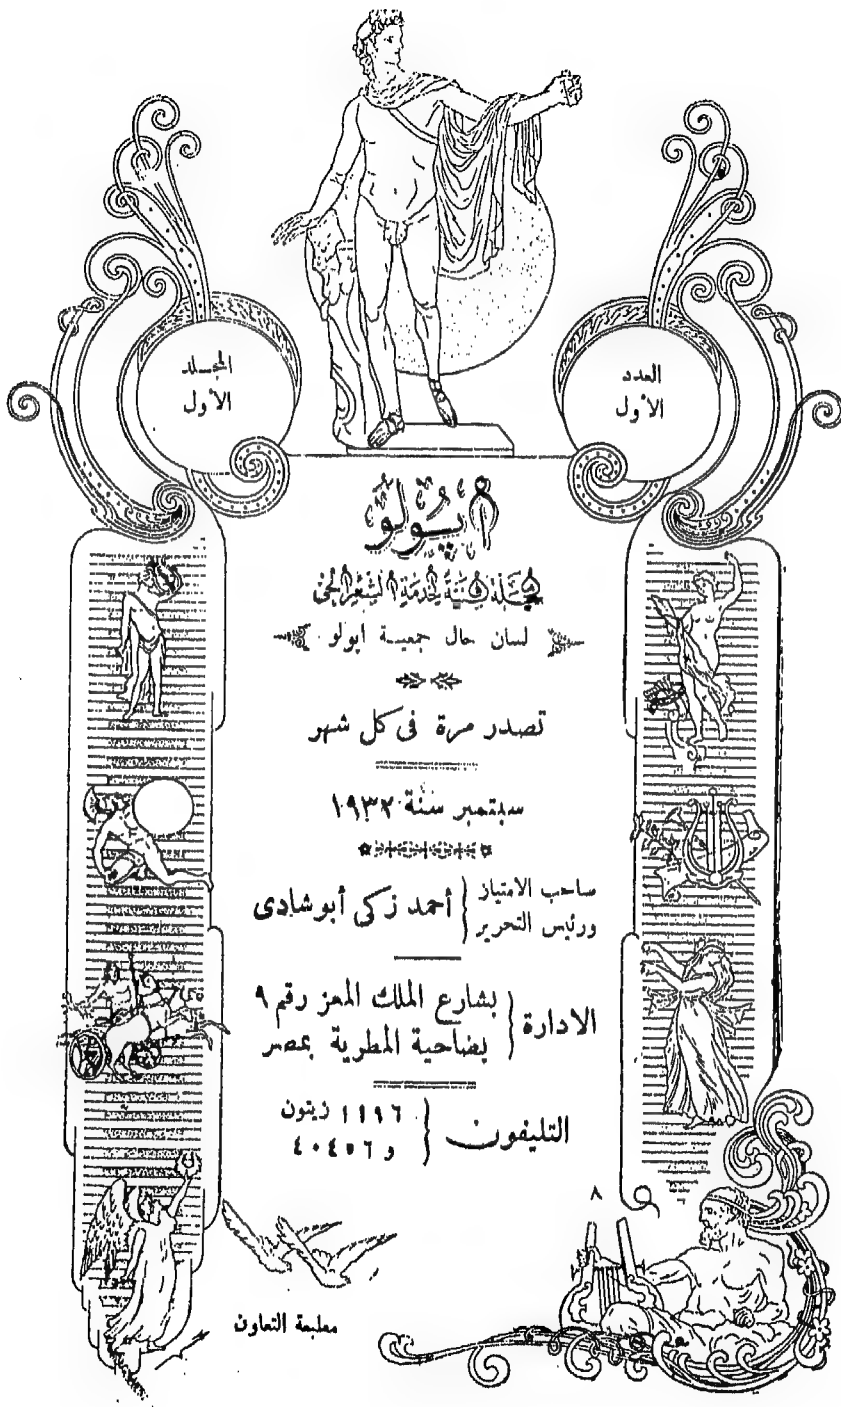 المجلد
الأول
العدد
الأول
أبولو
مجلة فنية لخدمة الشعر الحي
لسان حال جمعية ابولو
تصدر مرة فى كل شهر
سبتمبر سنة ١٩٣٢
صاحب الامتياز
ورئيس التحرير
أحمد زكى أبو شادى
الادارة
بشارع الملك المعز رقم ٩
بضاحية المطرية بمصر
التليفون
١١٩٦ زيتون
و ٤٠٤٥٦
٨
مطبعة التعاون